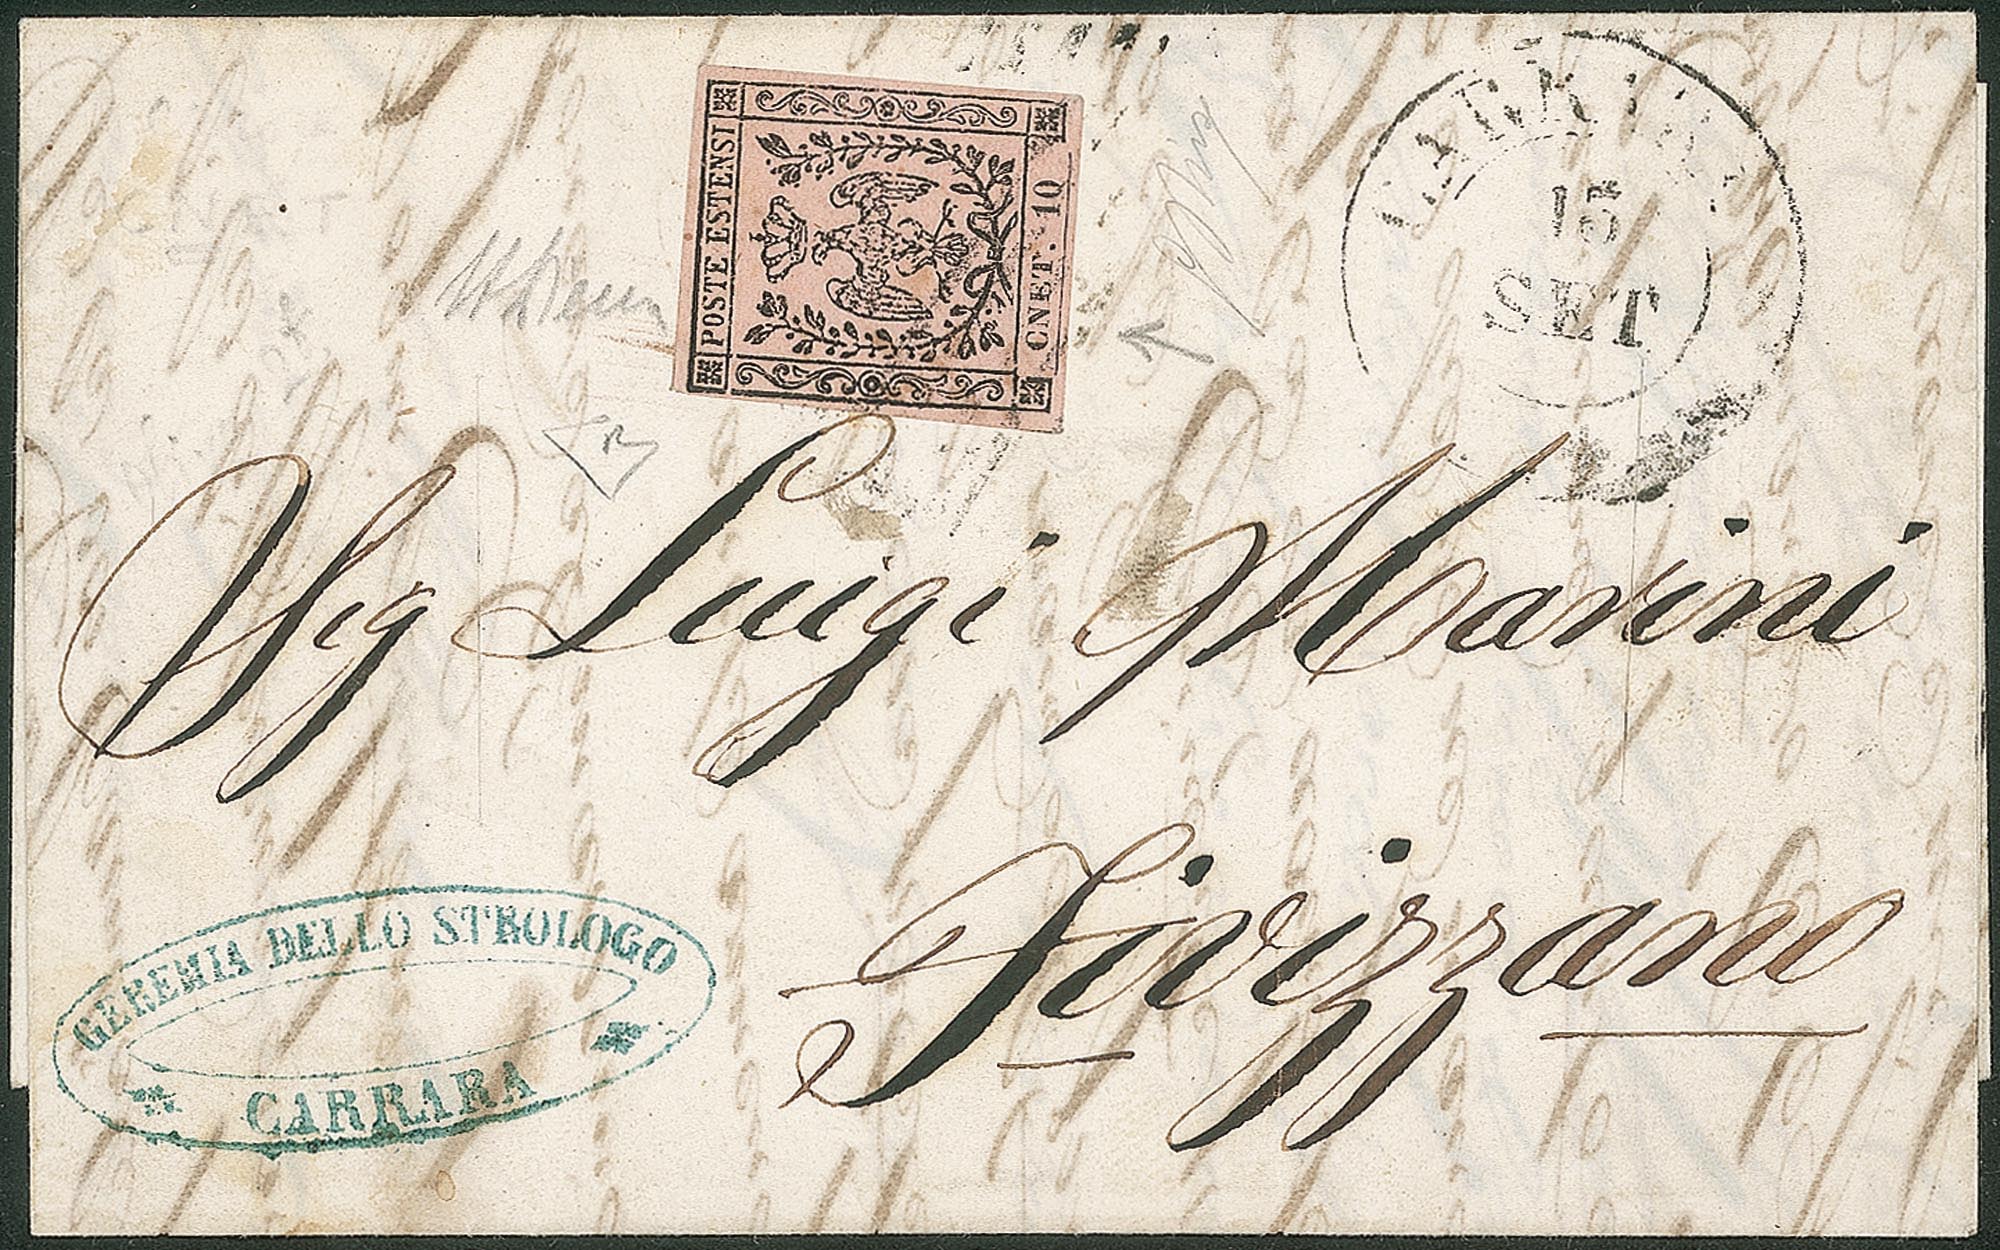 POSTE ESTENSI
CNET. 10
CARRARA
15
SET
Sig Luigi Marini
Fivizzano
GEREMIA DELLO STROLOGO
CARRARA